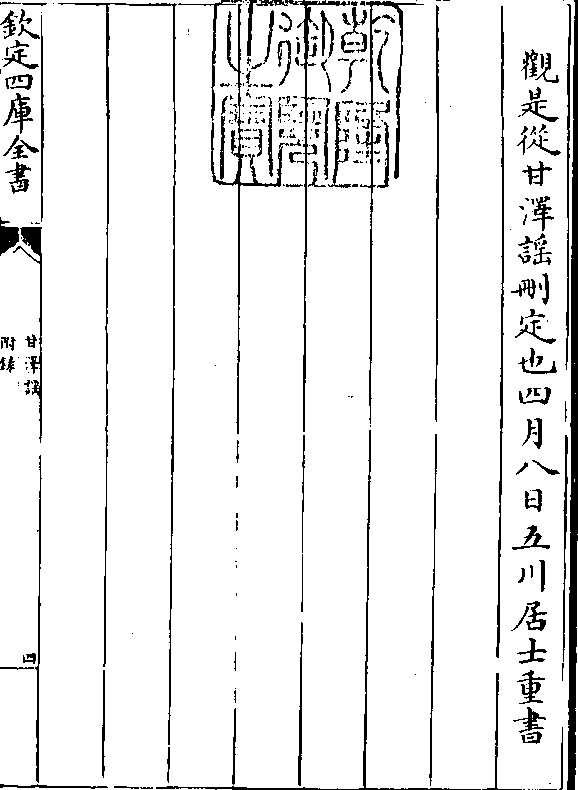 觀是從甘澤謡刪定也四月八日五川居士重書
乾隆
御覽
之寶
欽定四庫全書
甘澤謡
附錄
四